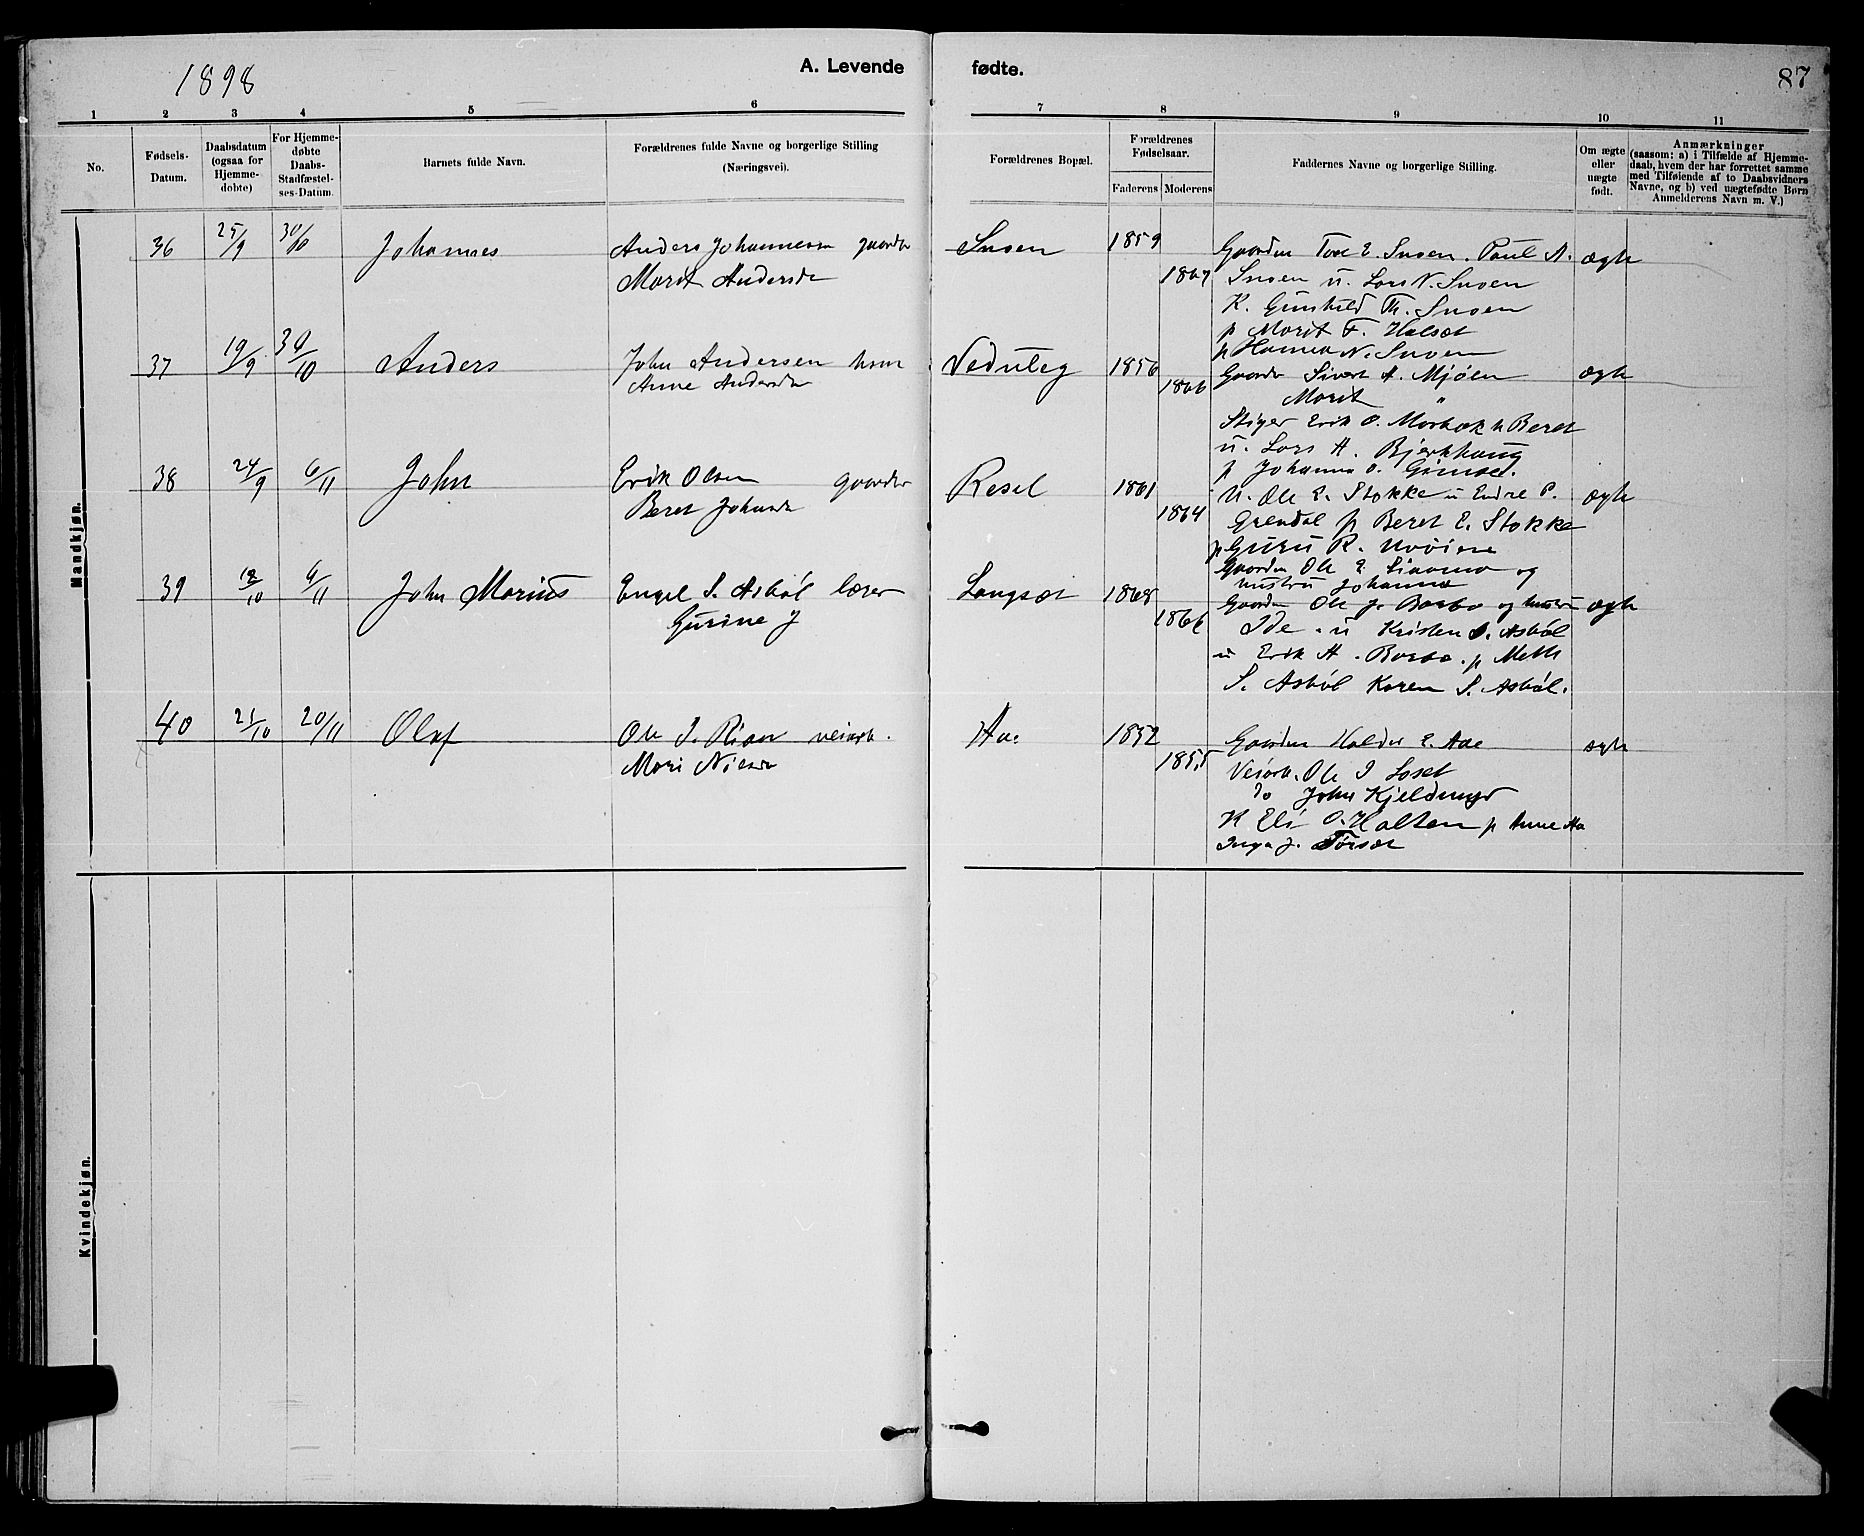 1898
A. Levende fødte.
87
1 2 3 4 5 6 7 8 9 10 11
No.
Fødsels-Datum.
Daabsdatum (ogsaa for Hjemmedøbte)
For Hjemmedøbte Daabs-Stadfæstelses-Datum.
Barnets fulde Navn.
Forældrenes fulde Navne og borgerlige Stilling (Næringsvei).
Forældrenes Bopæl.
Forældrenes Fødselsaar.
Faderens Moderens
Faddernes Navne og borgerlige Stilling.
Om ægte eller uægte født.
Anmærkninger (saasom: a) i Tilfælde af Hjemmedaab, hvem der har forrettet samme med Tilføiende af to Daabsvidners Navne, og b) ved uægtefødte Børn Anmelderens Navn m. V.)
Mandkjøn.
36 25/9 30/10 Johannes Anders Johannesen gaardbr Snoen 1859 Gaardm Tore E. Snoen. Paul A. ægte
Marit Andersdr 1867 Snoen u. Lars N. Snoen
K. Gunhild Th. Snoen
p Marit F. Helset
p Hanna N. Snoen
37 19/9 30/10 Anders John Andersen husm 1856 Gaardbr Sivert A. Mjøen ægte
Anne Andersdr 1866 Marit "
Stiger Erik O. Beret
u. Lars A. Bjerkhaug
p Johanna O. Grimse.
38 24/9 6/11 John Erik Olsen gaardbr Resel 1861 U. Ole E. Stokke u Endre P. ægte
Beret Johnsdr 1864 Grendal p Beret E. Stokke
p Guru R.
39 12/10 6/11 John Marius Engel S. Asbøl lærer Langsæt 1868 Gaardm Ole E. og
hustru Johanna
Gurine J 1866 Gaardm Ole J. Bosbo og hustru ægte
Ide. u Kristen S. Asbøl
u Erik A. Bosbo. p Mette
S. Asbøl Karen S. Asbøl.
40 21/10 20/11 Olaf Ole I. Rian veiarb. Aa. 1852 Gaardm Haldo E. Aae ægte
Mari Nilsdr 1855 Veiarb. Ole I Loset
do John Kjeldmyr
K Eli O. Holten p Anne Aa
Inga J. Torset
Kvindekjøn.